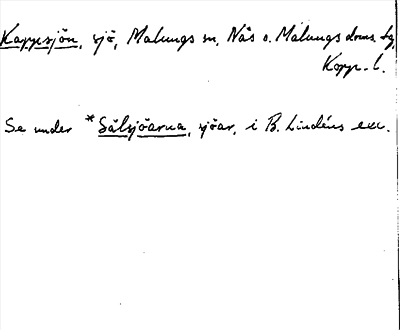 Kappesjön, sjö, Malungs sn, Nås o. Malungs doms. tg,
Kopp. l.
Se under *Sälsjöarna, sjöar, i B. Lindéns exc.